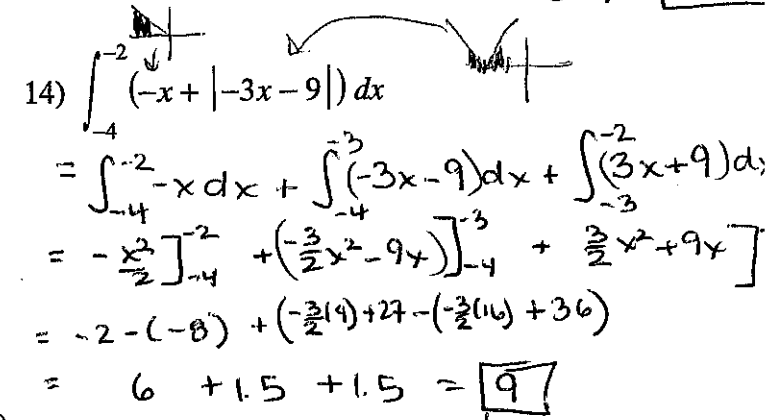 14) ∫_{-4}^{-2} (-x + |-3x - 9|) dx
= ∫_{-4}^{-2} -x dx + ∫_{-4}^{-3} (-3x - 9) dx + ∫_{-3}^{-2} (3x + 9) d
= - x²/2 ]_{-4}^{-2} + (-3/2 x² - 9x) ]_{-4}^{-3} + 3/2 x² + 9x ]
= -2 - (-8) + (-3/2 (9) + 27 - (-3/2 (16) + 36)
= 6 + 1.5 + 1.5 = 9